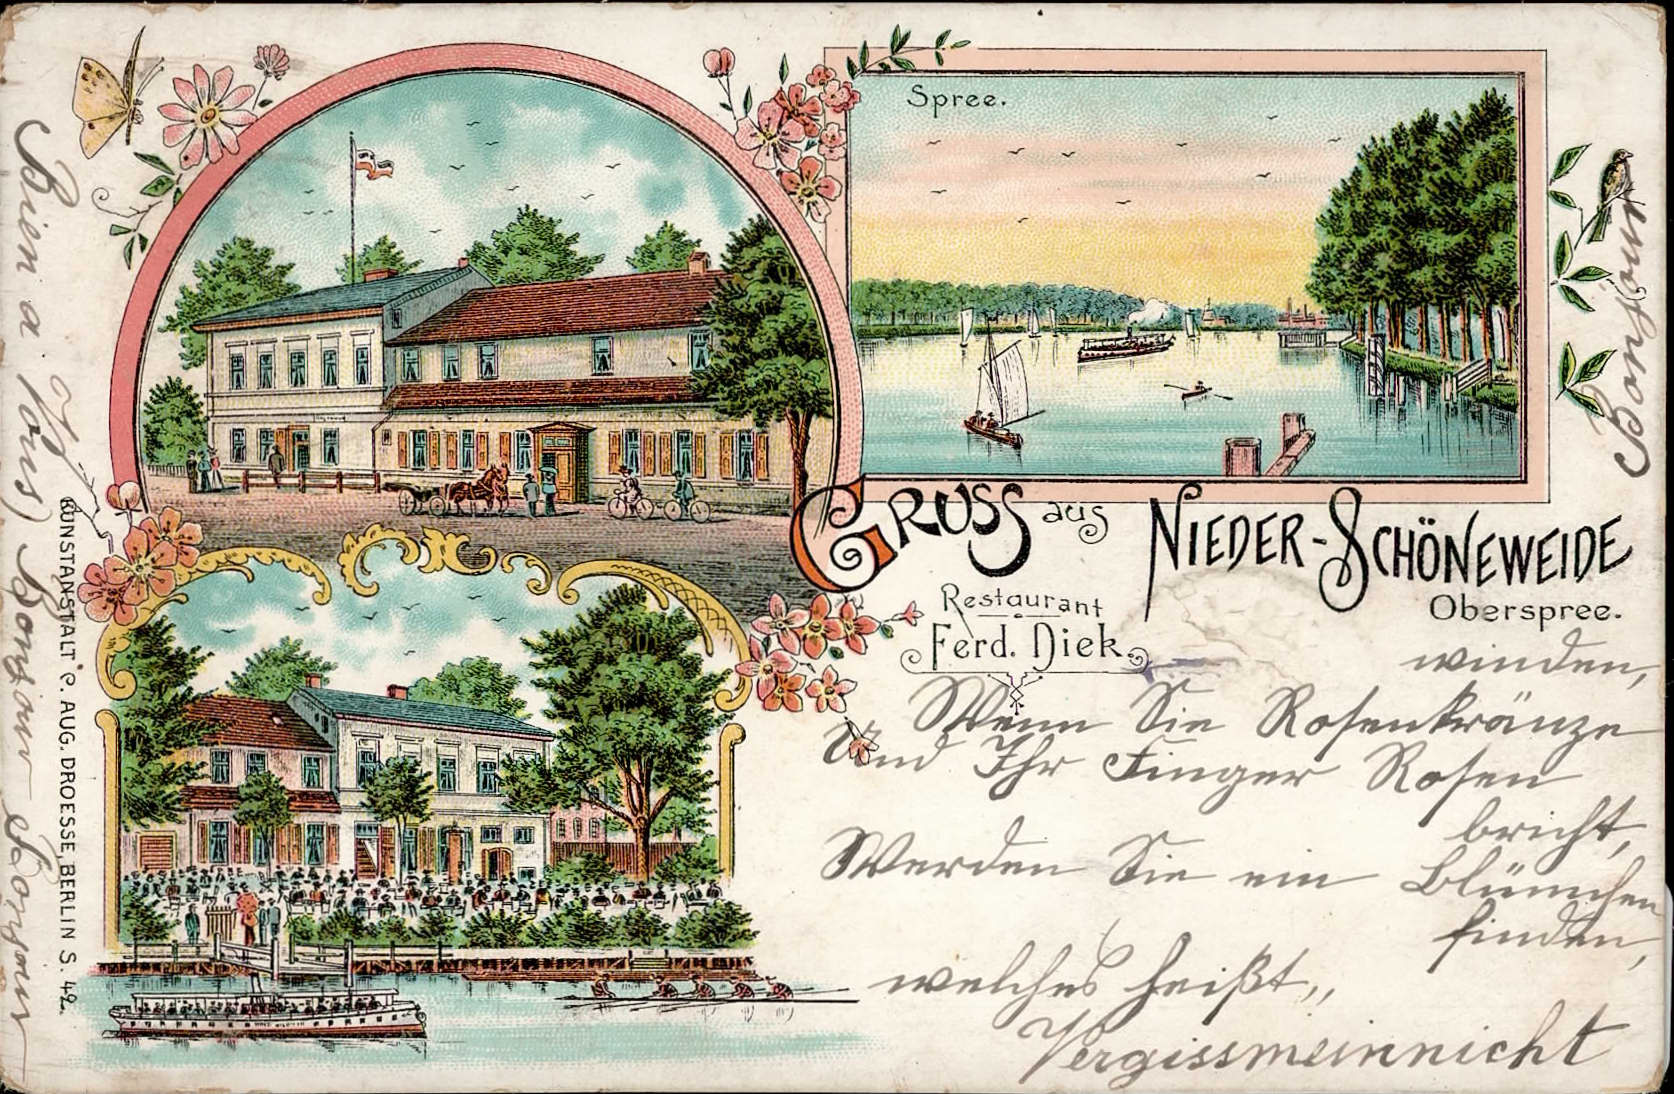 Spree.
GRUSS aus NIEDER-SCHÖNEWEIDE
Oberspree.
Restaurant
Ferd. Diek.
winden,
Wenn Sie Rosenkränze
Und Ihr Finger Rosen
bricht,
Werden Sie ein Blümchen
finden,
welches heißt,,
Vergissmeinnicht
Bien a Vous) Bonjour Bonjour
Bonjour
KUNSTANSTALT C. AUG. DROESSE, BERLIN S. 42.